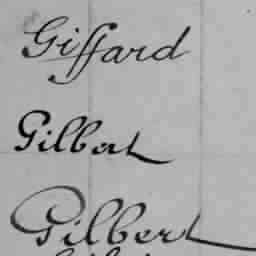 Giffard
Gilbert
Gilbert